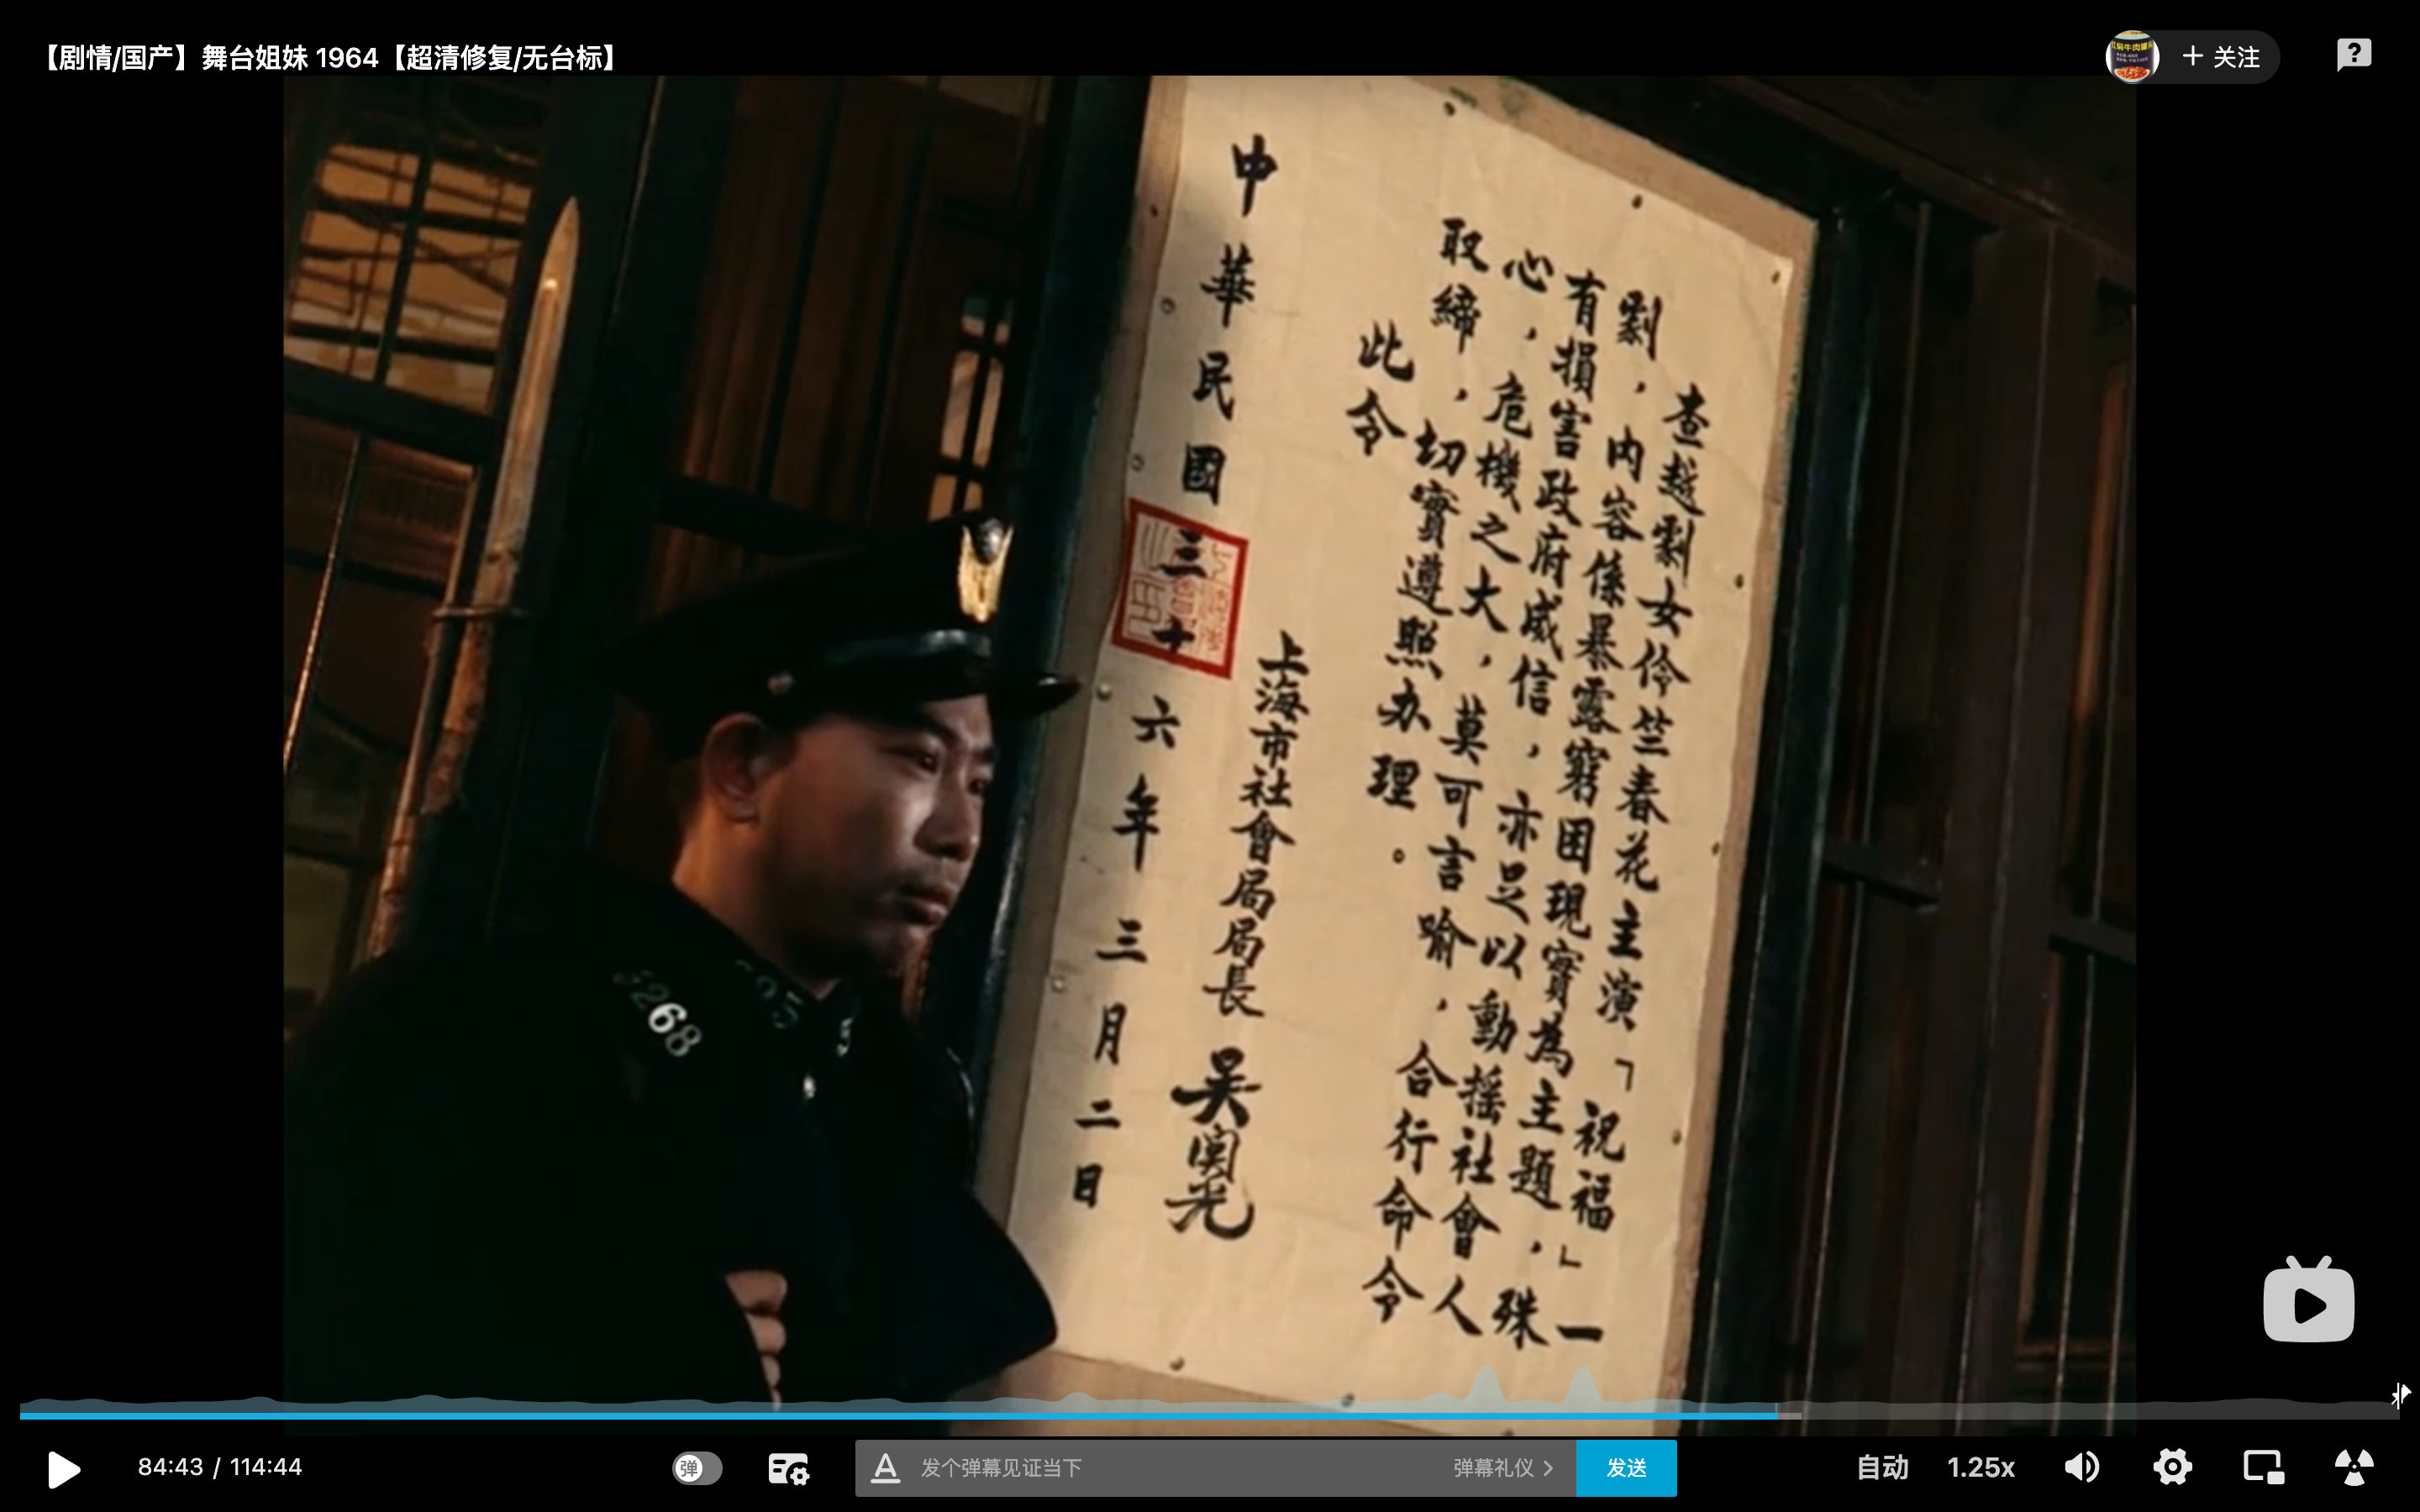 【剧情/国产】舞台姐妹 1964【超清修复/无台标】
+ 关注
查越劇女伶竺春花主演「祝福」一
劇，內容係暴露窮困現實為主題，殊
有損害政府威信，亦足以動摇社會人
心，危機之大，莫可言喻，合行命令
取締，切實遵照办理。
此令
上海市社會局局長 吴
中華民國三十六年三月二日
268
84:43 / 114:44
弹
发个弹幕见证当下
弹幕礼仪 >
发送
自动
1.25x